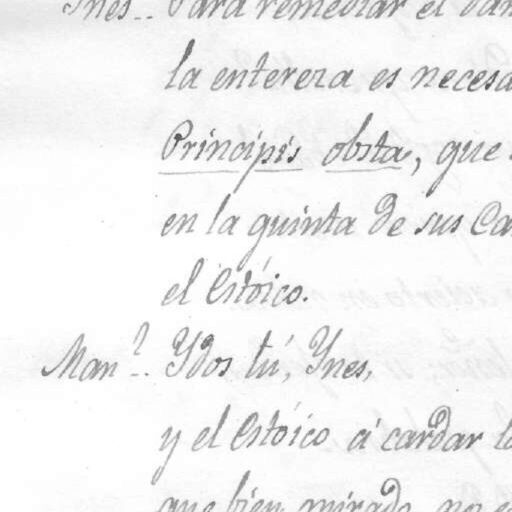 Ynes.. Para remediar el dañ
la entereza es necesa
Principiis obsta, que
en la quinta de sus Ca
el Estóico.
Man.l.. Ydos tú, Ynes,
y el Estóico á cardar l
que bien mirado no e